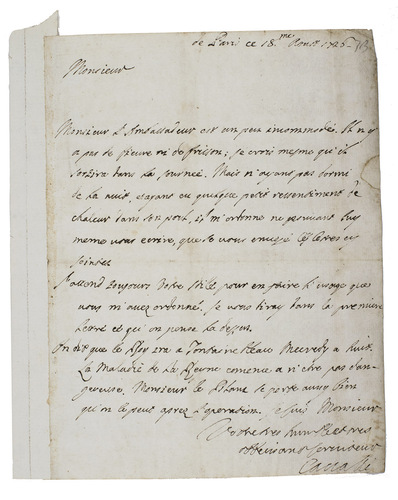 de Paris ce 18.me Aoust 1726
Monsieur
Monsieur L'Ambassadeur est un peu incommodé. Il n'y
a pas de fievre ni de frisson; je crois mesme qu'il
sortira dans la journée. Mais n'ayans pas dormi
de la nuit, et ayans eu quelque petit ressentiment de
chaleur dans son, il m'ordonne ne pouvant luy
meme vous ecrire, que je vous envoye les lettres cy
jointes
J'attend toujours votre pour en faire l'usage que
vous m'avez ordonné. Je vous diray dans la premiere
lettre ce qu'on pense la dessus.
On dit que le Roy ira a Fontainebleau Mecredy a huit.
La Maladie de La Reyne comence a n'etre pas dan-
gereuse. Monsieur le Blanc se porte aussy bien
qu'on le peut apres l'operation. Je suis Monsieur
Votre tres humble et tres
obeissant serviteur